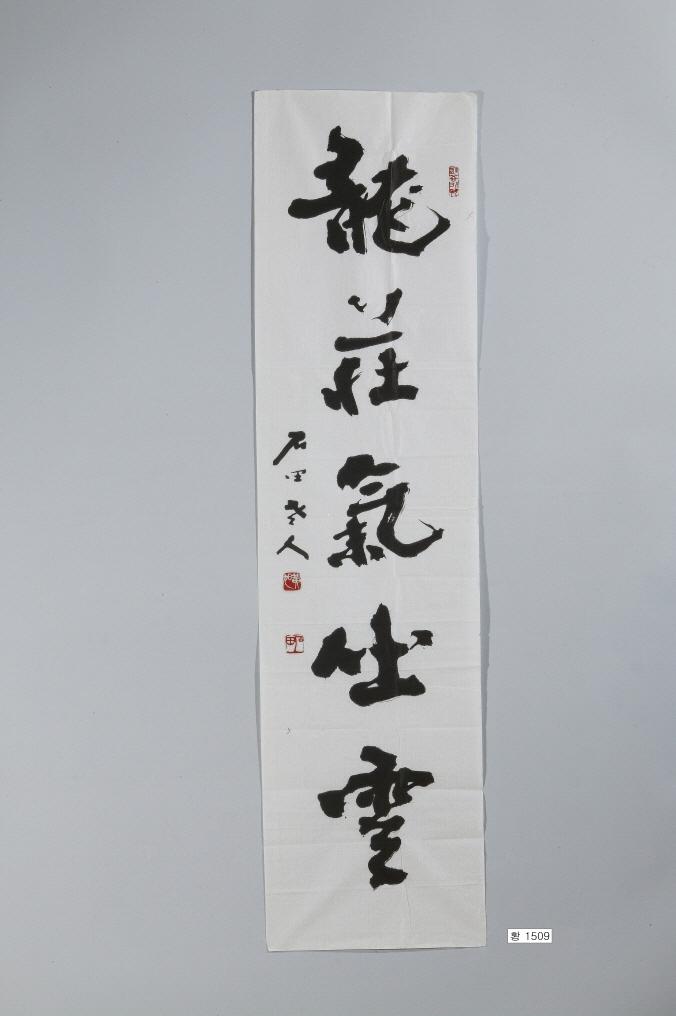 龍莊氣坐雲
石田老人
石田
황 1509